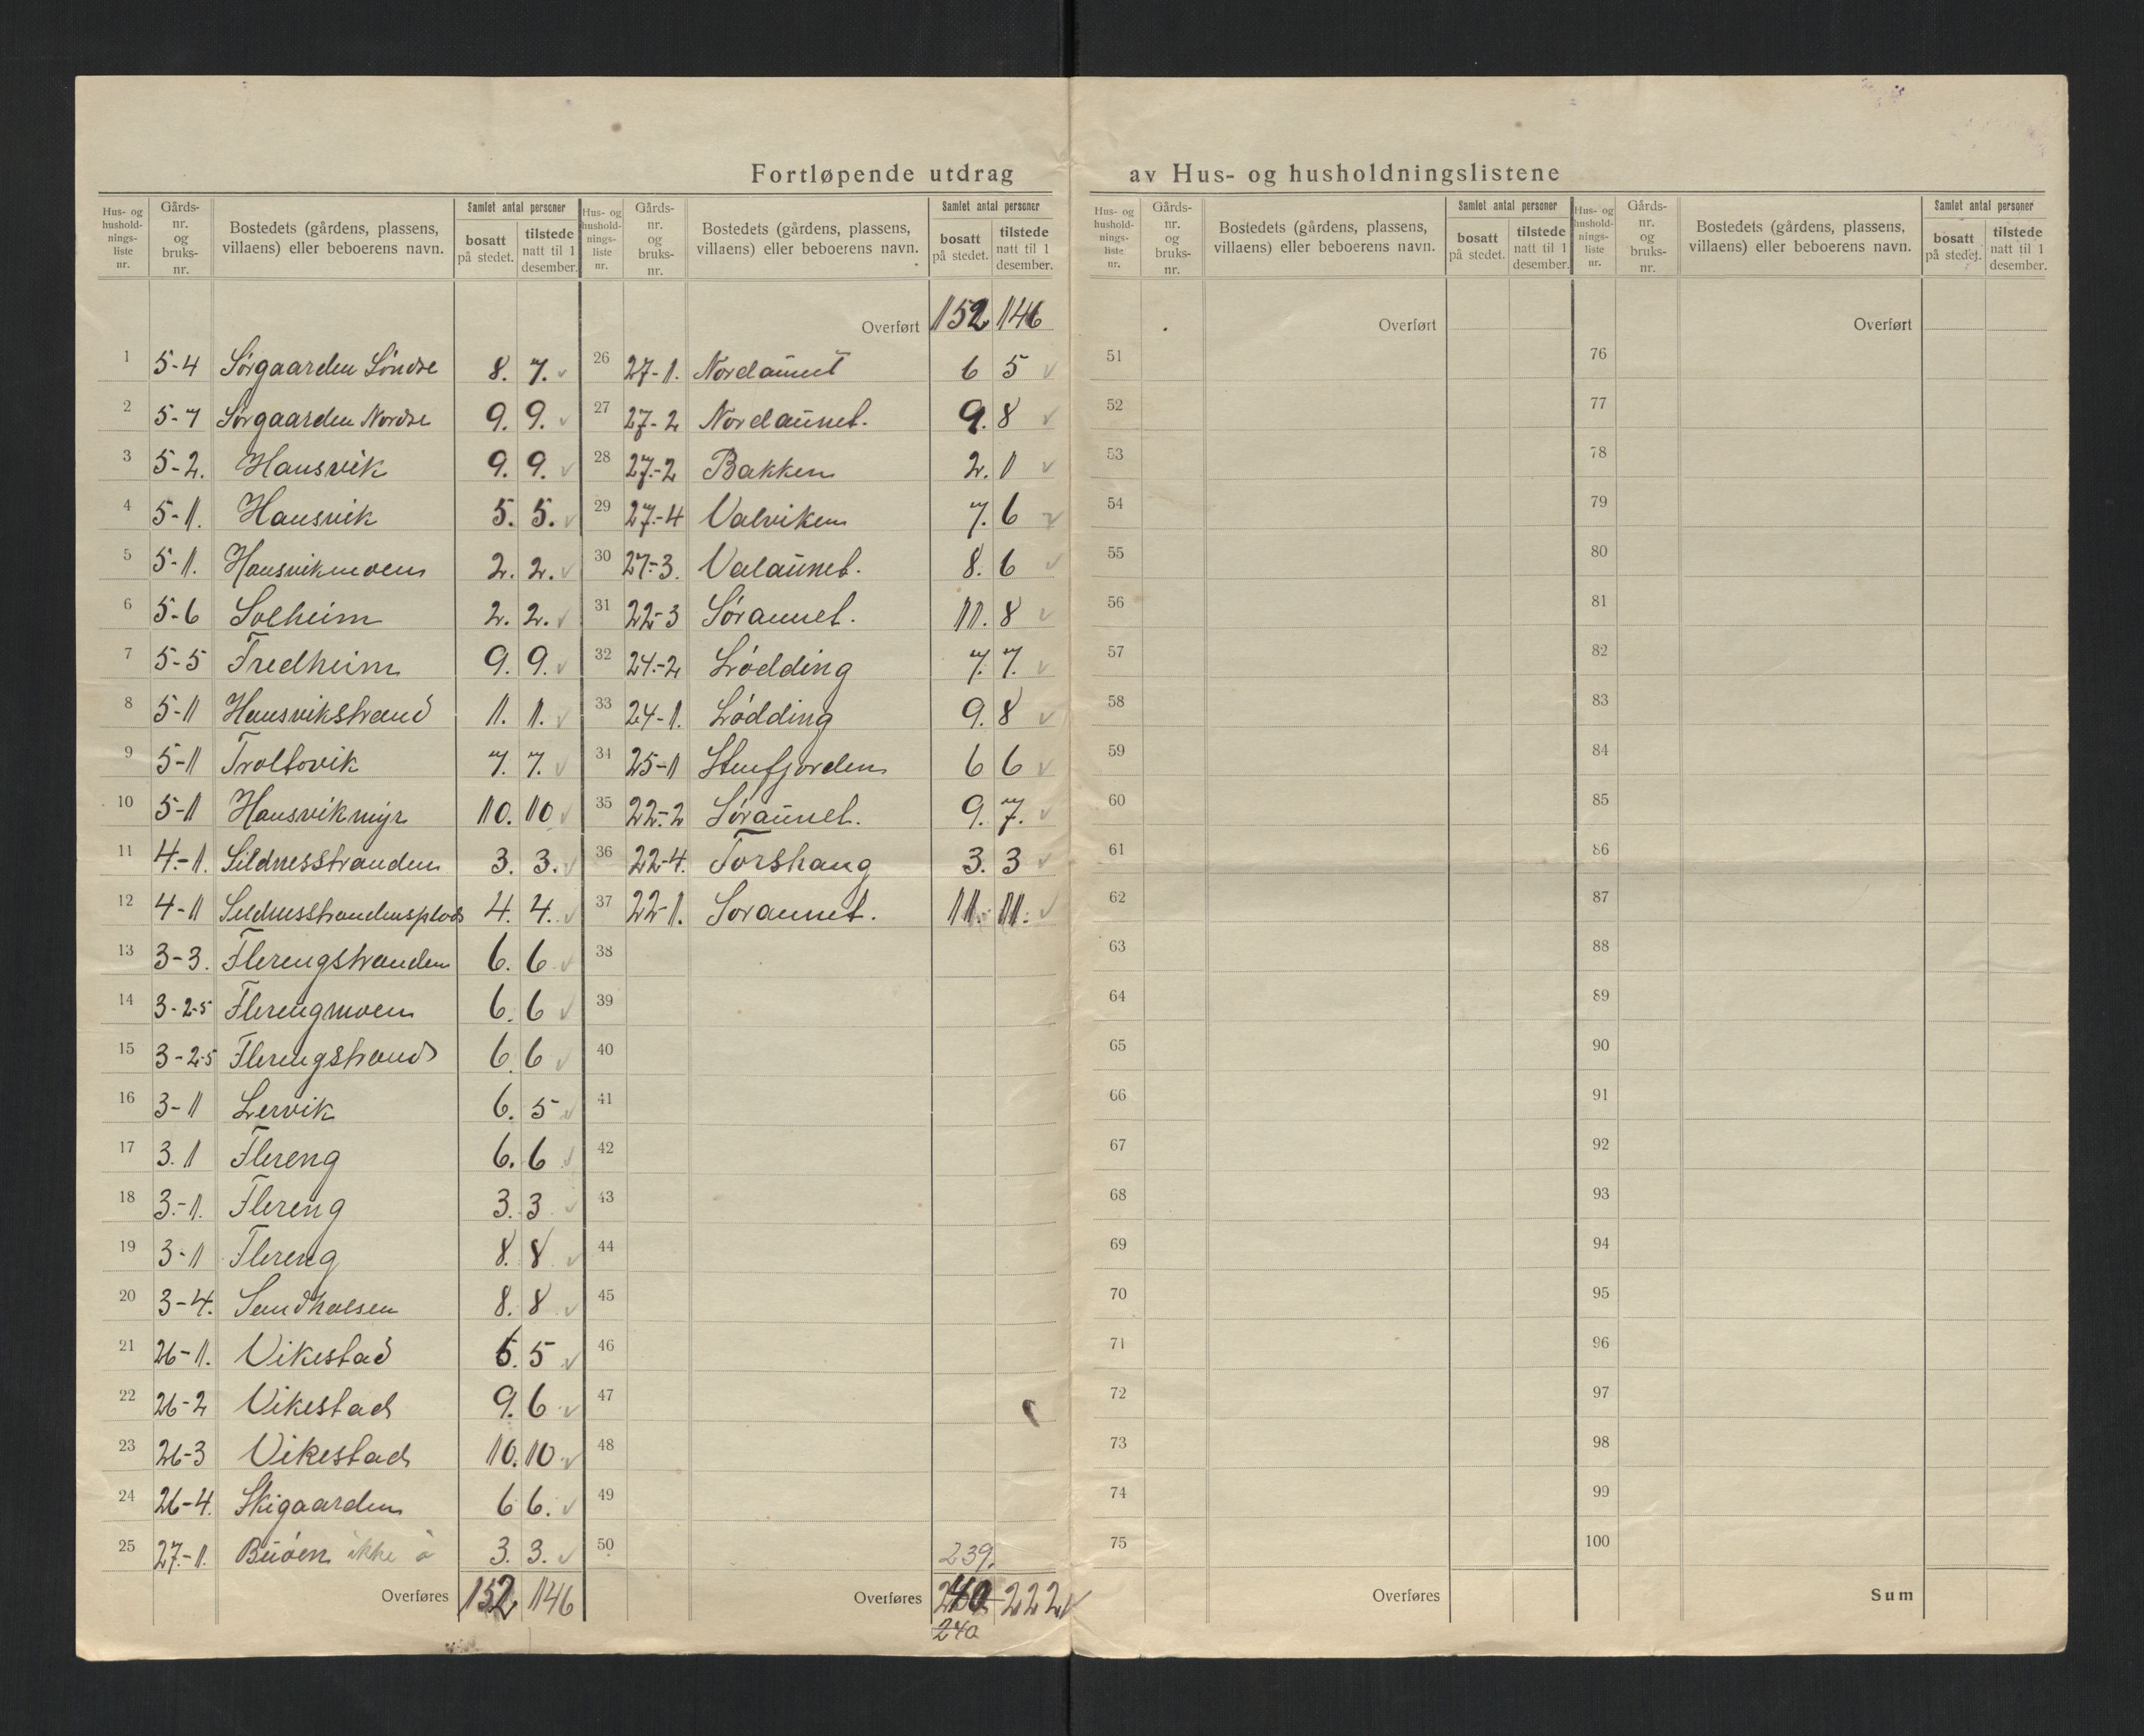 Fortløpende utdrag av Hus- og husholdningslistene
Hus- og hushold-nings-liste nr. | Gårds-nr. og bruks-nr. | Bostedets (gårdens, plassens, villaens) eller beboerens navn. | Samlet antal personer | bosatt på stedet. | tilstede natt til 1 desember.
1 5-4 Sørgaarden Søndre 8. 7.
2 5-7 Sørgaarden Nordre 9. 9.
3 5-2. Hausvik 9. 9.
4 5-1. Hausvik 5. 5.
5 5-1. Hausvikmoen 2. 2.
6 5-6 Solheim 2. 2.
7 5-5 Fredheim 9. 9.
8 5-1 Hausvikstrand 1. 1.
9 5-1 Troltovik 7. 7.
10 5-1 Hausvikmyr 10. 10
11 4-1. Sildnesstranden 3. 3.
12 4-1 Sildnesstrandensplads 4. 4.
13 3-3. Flerengstranden 6. 6
14 3-2-5 Flerengmoen 6. 6
15 3-2-5 Flerengstrand 6. 6
16 3-1 Lervik 6. 5
17 3.1 Flereng 6. 6
18 3-1. Flereng 3. 3
19 3-1 Flereng 8. 8
20 3-4. Sandhalsen 8. 8
21 26-1. Vikestad 5
22 26-2 Vikestad 9. 6
23 26-3 Vikestad 10. 10
24 26-4. Skigaarden 6 6.
25 27-1. Buøen ikke 3. 3.
Overføres 152 146
Hus- og hushold-nings-liste nr. | Gårds-nr. og bruks-nr. | Bostedets (gårdens, plassens, villaens) eller beboerens navn. | Samlet antal personer | bosatt på stedet. | tilstede natt til 1 desember.
Overført 152 146
26 27-1. Nordaunet 6 5
27 27-2 Nordaunet. 9. 8
28 27-2 Bakken 2. 1
29 27-4 Valviken 7. 6
30 27-3. Valaunet. 8. 6
31 22-3 Søraunet. 11. 8
32 24-2 Lødding 7. 7.
33 24-1. Lødding 9. 8
34 25-1 Stenfjorden 6 6
35 22-2 Søraunet. 9. 7.
36 22-4. Torshaug 3. 3
37 22-1. Soraunet. 11. 11.
38
39
40
41
42
43
44
45
46
47
48
49
50
239.
Overføres 240 222
240
Hus- og hushold-nings-liste nr. | Gårds-nr. og bruks-nr. | Bostedets (gårdens, plassens, villaens) eller beboerens navn. | Samlet antal personer | bosatt på stedet. | tilstede natt til 1 desember.
Overført
51
52
53
54
55
56
57
58
59
60
61
62
63
64
65
66
67
68
69
70
71
72
73
74
75
Overføres
Hus- og hushold-nings-liste nr. | Gårds-nr. og bruks-nr. | Bostedets (gårdens, plassens, villaens) eller beboerens navn. | Samlet antal personer | bosatt på stedet. | tilstede natt til 1 desember.
Overført
76
77
78
79
80
81
82
83
84
85
86
87
88
89
90
91
92
93
94
95
96
97
98
99
100
Sum